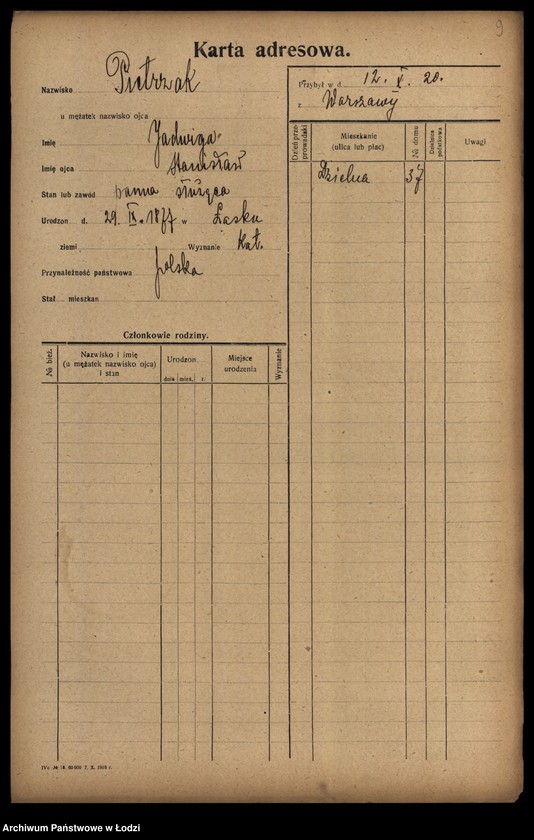 9
Karta adresowa.
Nazwisko Pietrzak
u mężatek nazwisko ojca
Imię Jadwiga
Imię ojca Stanisław
Stan lub zawód panna służąca
Urodzon d. 29. IX. 1877 w Łasku
ziemi Wyznanie Kat.
Przynależność państwowa polska
Stał mieszkan
Przybył w d. 12. X. 20.
z Warszawy
Dzień przeprowadzki
Mieszkanie
(ulica lub plac)
№ domu
Dzielnica
podatkowa
Uwagi
Dzielna 37
Członkowie rodziny.
№ bież.
Nazwisko i imię
(u mężatek nazwisko ojca)
i stan
Urodzon
dnia mies. r.
Miejsce
urodzenia
Wyznanie
60000 7. X.
Archiwum Państwowe w Łodzi